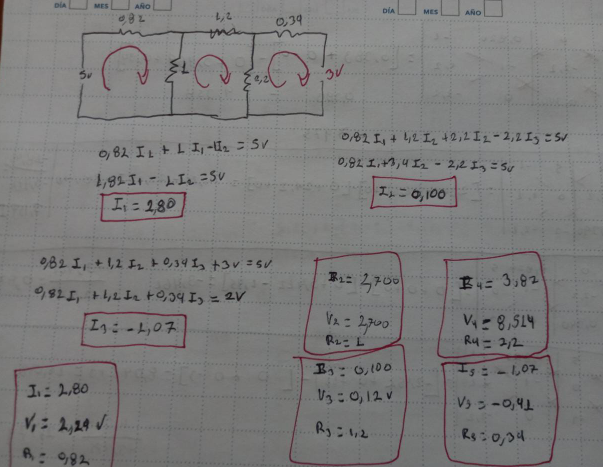 DÍA MES AÑO
DÍA MES AÑO
0,82 1,2 0,39
5v 1 2,2 3V
0,82 I1 + 1 I1 - 1I2 = 5v
1,82 I1 - 1 I2 = 5v
I1 = 2,80
0,82 I1 + 1,2 I2 + 2,2 I2 - 2,2 I3 = 5v
0,82 I1 + 3,4 I2 - 2,2 I3 = 5v
I2 = 0,100
0,82 I1 + 1,2 I2 + 0,39 I3 + 3v = 5v
0,82 I1 + 1,2 I2 + 0,39 I3 = 2V
I3 = -1,07
I2 = 2,700
V2 = 2,700
R2 = 1
I4 = 3,87
V4 = 8,514
R4 = 2,2
I1 = 2,80
V1 = 2,29 V
R1 = 0,82
I3 = 0,100
V3 = 0,12 V
R3 = 1,2
I5 = -1,07
V5 = -0,41
R5 = 0,39